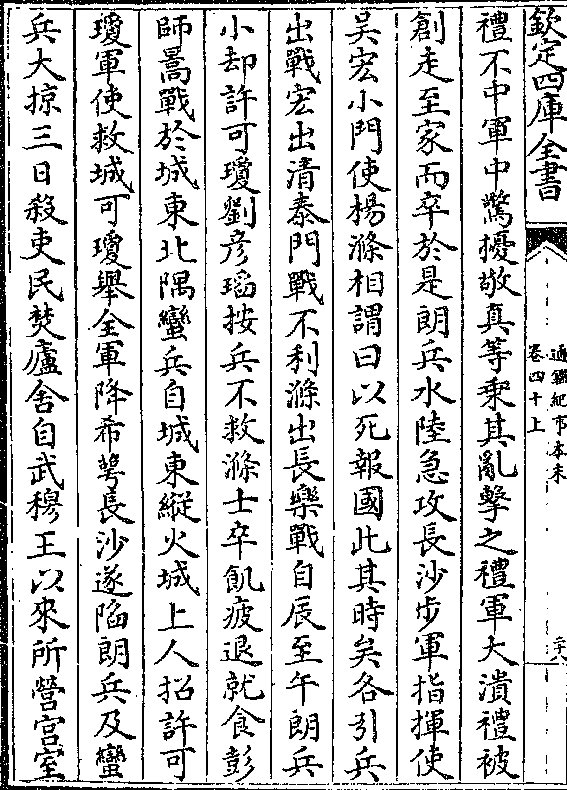 欽定四庫全書
通鑑紀事本末
卷四十上
禮不中軍中驚擾敬真等乘其亂擊之禮軍大潰禮被
創走至家而卒於是朗兵水陸急攻長沙步軍指揮使
吳宏小門使楊滌相謂曰以死報國此其時矣各引兵
出戰宏出清泰門戰不利滌出長樂戰自辰至午朗兵
小却許可瓊劉彦瑫按兵不救滌士卒飢疲退就食彭
師暠戰於城東北隅蠻兵自城東縱火城上人招許可
瓊軍使救城可瓊舉全軍降希萼長沙遂陷朗兵及蠻
兵大掠三日殺吏民焚廬舍自武穆王以來所營宫室